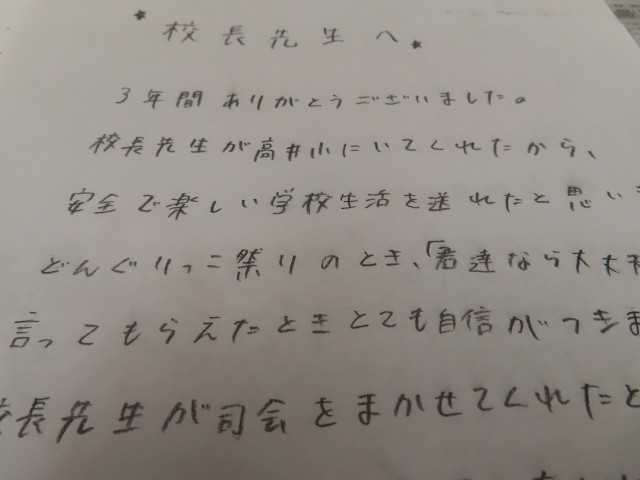 ★校長先生へ★
3年間ありがとうございました。
校長先生が高井小にいてくれたから、
安全で楽しい学校生活を送れたと思い
どんぐりっこ祭りのとき、「君達なら大丈
言ってもらえたときとても自信がつきま
校長先生が司会をまかせてくれたと